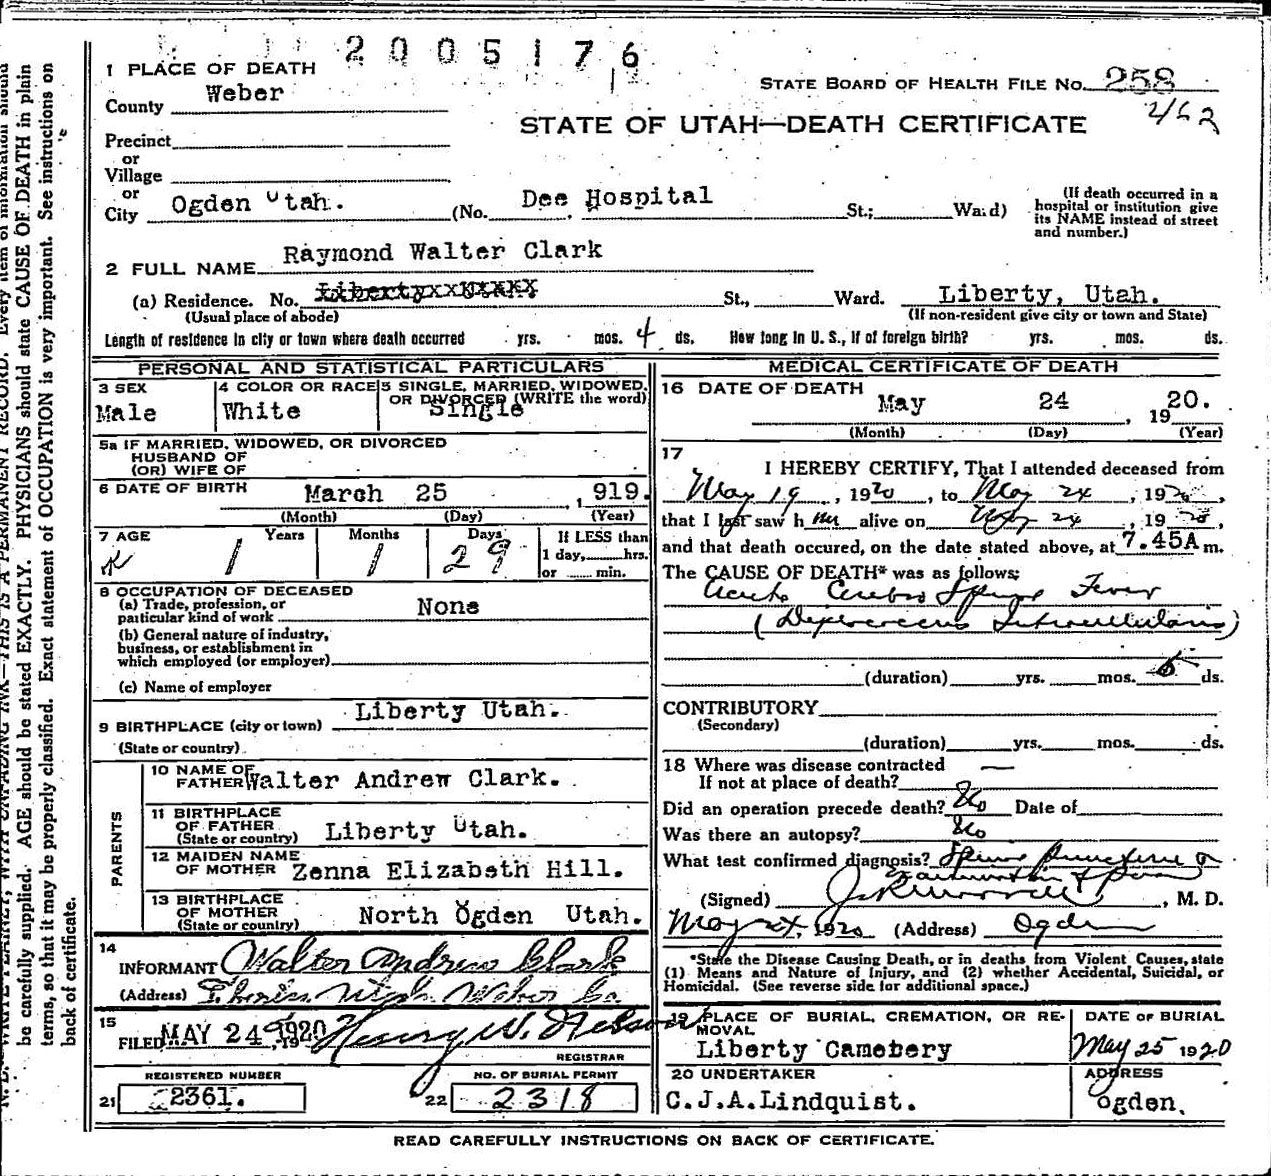 2005176
1 PLACE OF DEATH
STATE BOARD OF HEALTH FILE No. 258
County Weber
462
STATE OF UTAH—DEATH CERTIFICATE
Precinct
or
Village
or
City Ogden Utah. (No. Dee Hospital St.; Ward)
(If death occurred in a
hospital or institution give
its NAME instead of street
and number.)
2 FULL NAME Raymond Walter Clark
(a) Residence. No. St., Ward. Liberty, Utah.
(Usual place of abode) (If non-resident give city or town and State)
Length of residence in city or town where death occurred yrs. mos. 4 ds. How long in U. S., if of foreign birth? yrs. mos. ds.
PERSONAL AND STATISTICAL PARTICULARS
3 SEX
Male
4 COLOR OR RACE
White
5 SINGLE, MARRIED, WIDOWED,
OR DIVORCED (WRITE the word)
Single
5a IF MARRIED, WIDOWED, OR DIVORCED
HUSBAND OF
(OR) WIFE OF
6 DATE OF BIRTH March 25, 919.
(Month) (Day) (Year)
7 AGE Years Months Days If LESS than
1 1 29 1 day, hrs.
or min.
8 OCCUPATION OF DECEASED
(a) Trade, profession, or
particular kind of work None
(b) General nature of industry,
business, or establishment in
which employed (or employer)
(c) Name of employer
9 BIRTHPLACE (city or town) Liberty Utah.
(State or country)
PARENTS
10 NAME OF
FATHER Walter Andrew Clark.
11 BIRTHPLACE
OF FATHER
(State or country) Liberty Utah.
12 MAIDEN NAME
OF MOTHER Zenna Elizabeth Hill.
13 BIRTHPLACE
OF MOTHER
(State or country) North Ogden Utah.
14
INFORMANT Walter Andrew Clark
(Address) Utah Weber Co.
15
FILED MAY 24 1920, 19 Henry W. Nelson
REGISTRAR
REGISTERED NUMBER
21 2361.
NO. OF BURIAL PERMIT
22 2318
MEDICAL CERTIFICATE OF DEATH
16 DATE OF DEATH
May 24, 1920.
(Month) (Day) (Year)
17
I HEREBY CERTIFY, That I attended deceased from
May 19, 1920, to May 24, 1920,
that I last saw him alive on May 24, 1920,
and that death occured, on the date stated above, at 7.45A m.
The CAUSE OF DEATH* was as follows;
Acute Cerebro Spinal Fever
(Diplococcus Intracellularis)
(duration) yrs. mos. 5 ds.
CONTRIBUTORY
(Secondary)
(duration) yrs. mos. ds.
18 Where was disease contracted —
If not at place of death?
Did an operation precede death? No Date of
Was there an autopsy? No
What test confirmed diagnosis? Spinal puncture &
(Signed), M. D.
May 24, 1920 (Address) Ogden
*State the Disease Causing Death, or in deaths from Violent Causes, state
(1) Means and Nature of Injury, and (2) whether Accidental, Suicidal, or
Homicidal. (See reverse side for additional space.)
19 PLACE OF BURIAL, CREMATION, OR RE-
MOVAL
Liberty Cametery
DATE OF BURIAL
May 25 1920
20 UNDERTAKER
C.J.A.Lindquist.
ADDRESS
Ogden.
READ CAREFULLY INSTRUCTIONS ON BACK OF CERTIFICATE.
be carefully supplied. AGE should be stated EXACTLY. PHYSICIANS should state CAUSE OF DEATH in plain
terms, so that it may be properly classified. Exact statement of OCCUPATION is very important. See instructions on
back of certificate.